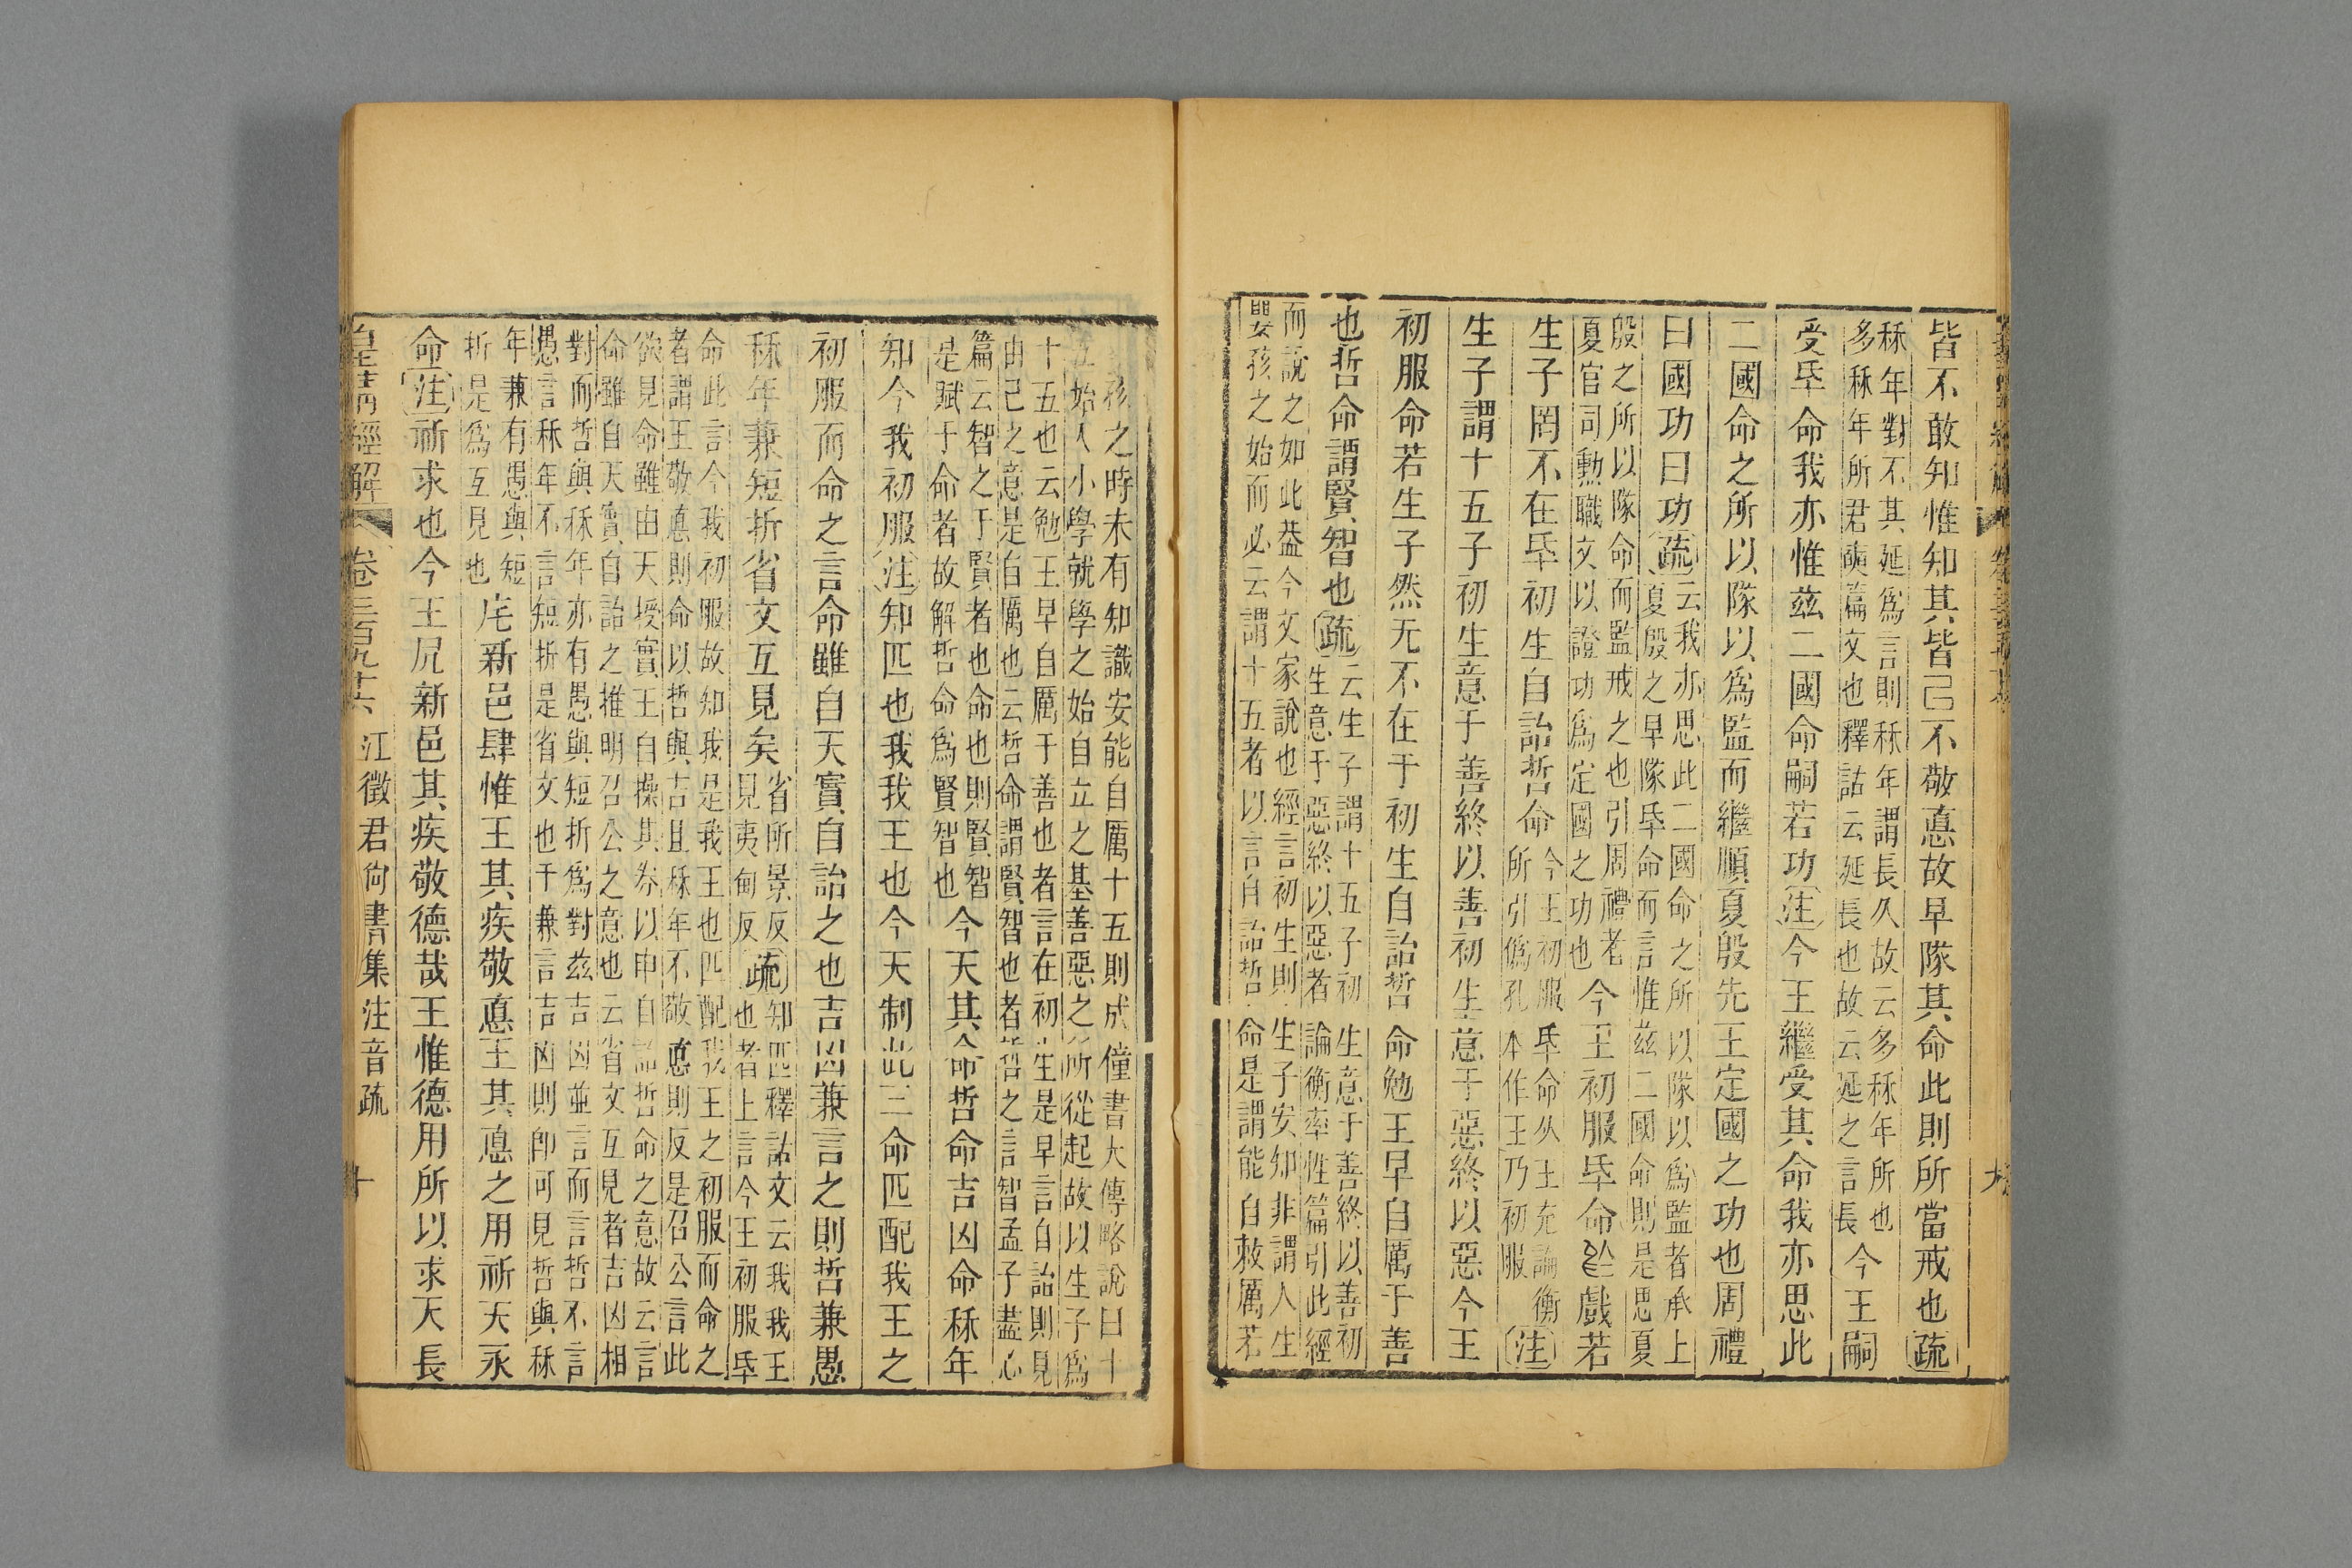 皆不敢知惟知其皆己不敬悳故早隊其命此則所當戒也疏
秝年對不其延爲言則秝年謂長久故云多秝年所也
多秝年所君奭篇文也釋詁云延長也故云延之言長
今王嗣
受氒命我亦惟茲二國命嗣若功注今王繼受其命我亦思此
二國命之所以隊以爲監而繼順夏殷先王定國之功也周禮
曰國功曰功疏
云我亦思此二國命之所以隊以爲監者承上
夏殷之早隊氒命而言惟茲二國命則是思夏
殷之所以隊命而監戒之也引周禮者
夏官司勲職文以證功爲定國之功也
今王初服氒命
戲若
生子罔不在氒初生自詒哲命
今王初服氒命从王充論衡
所引僞孔本作王乃初服
注
生子謂十五子初生意于善終以善初生意于惡終以惡今王
初服命若生子然无不在于初生自詒哲命勉王早自厲于善
也哲命謂賢智也疏
云生子謂十五子初生意于善終以善初
生意于惡終以惡者論衡率性篇引此經
而說之如此葢今文家說也經言初生則生子安知非謂人生
嬰孩之始而必云謂十五者以言自詒哲命是謂能自敕厲若
孩之時未有知識安能自厲十五則成僮書大傳略說曰十
五始入小學就學之始自立之基善惡之所從起故以生子爲
十五也云勉王早自厲于善也者言在初生是早言自詒則見
由己之意是自厲也云哲命謂賢智也者哲之言智孟子盡心
篇云智之于賢者也命也則賢智
是賦于命者故解哲命爲賢智也
今天其命哲命吉凶命秝年
知今我初服注知匹也我我王也今天制此三命匹配我王之
初服而命之言命雖自天實自詒之也吉凶兼言之則哲兼愚
秝年兼短折省文互見矣
省所景反
見夷甸反
疏
知匹釋詁文云我我王
也者上言今王初服氒
命此言今我初服故知我是我王也匹配我王之初服而命之
者謂王敬悳則命以哲與吉且秝年不敬悳則反是召公言此
欲見命雖由天授實王自操其券以申自詒哲命之意故云言
命雖自天實自詒之推明召公之意也云省文互見者吉凶相
對而哲與秝年亦有愚與短折爲對茲吉凶並言而言哲不言
愚言秝年不言短折是省文也于兼言吉凶則卽可見哲與秝
年兼有愚與短
折是爲互見也
宅新邑肆惟王其疾敬悳王其悳之用祈天永
命注祈求也今王凥新邑其疾敬德哉王惟德用所以求天長
皇淸經解
卷三百九十六
江徵君尙書集注音疏
十